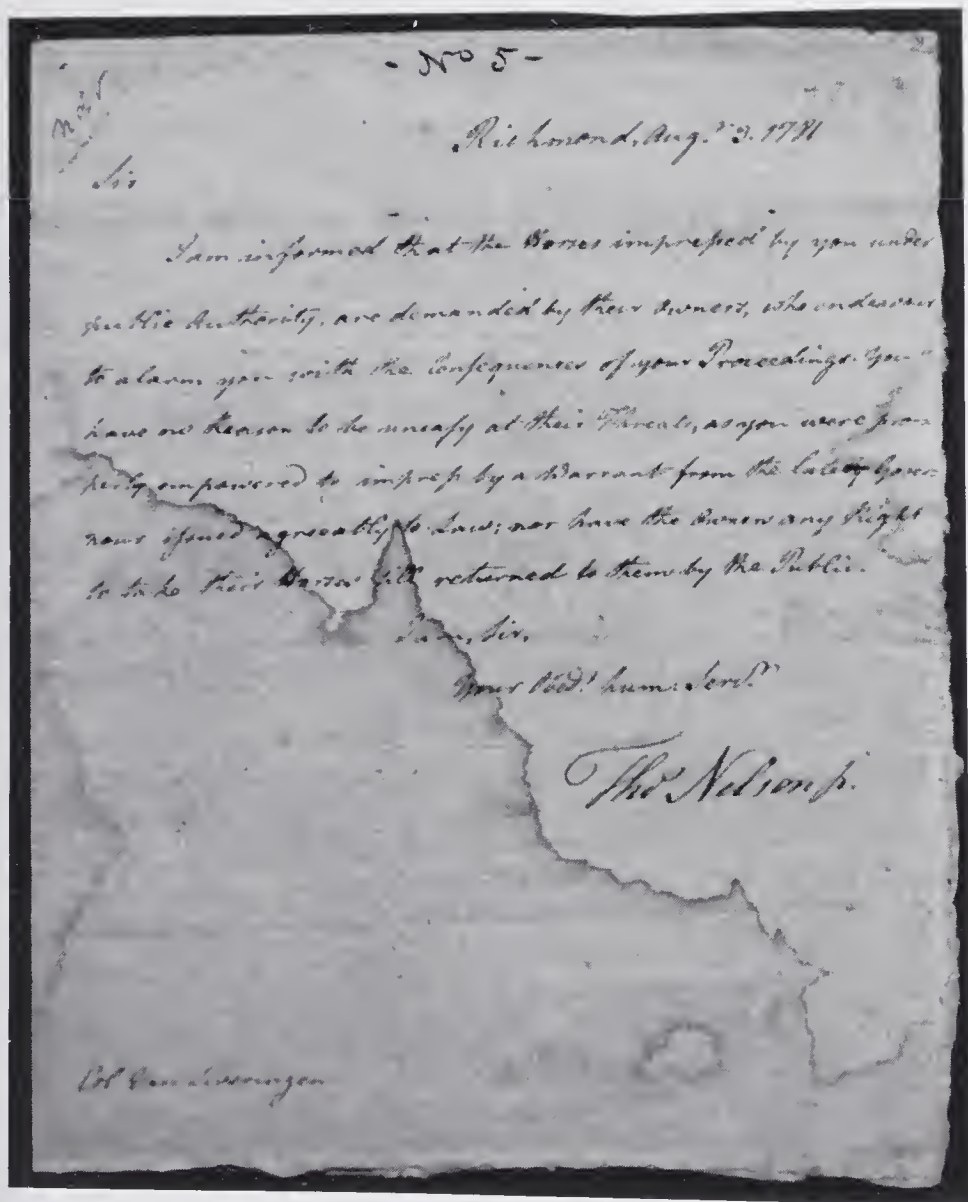 - No 5 -
Richmond, Augt 3. 1781
Sir
I am informed that the Horses impressed by you under
public Authority, are demanded by their Owners, who endeavour
to alarm you with the Consequences of your Proceedings. You
have no Reason to be uneasy at their Threats, as you were pro-
perly empowered to impress by a Warrant from the late Gover-
nour issued agreeably to Law; nor have the Owners any Right
to take their Horses till returned to them by the Public.
I am, Sir,
Your Obedt. hum. Servt.
Thos Nelson jr.
Col Van Swearingen